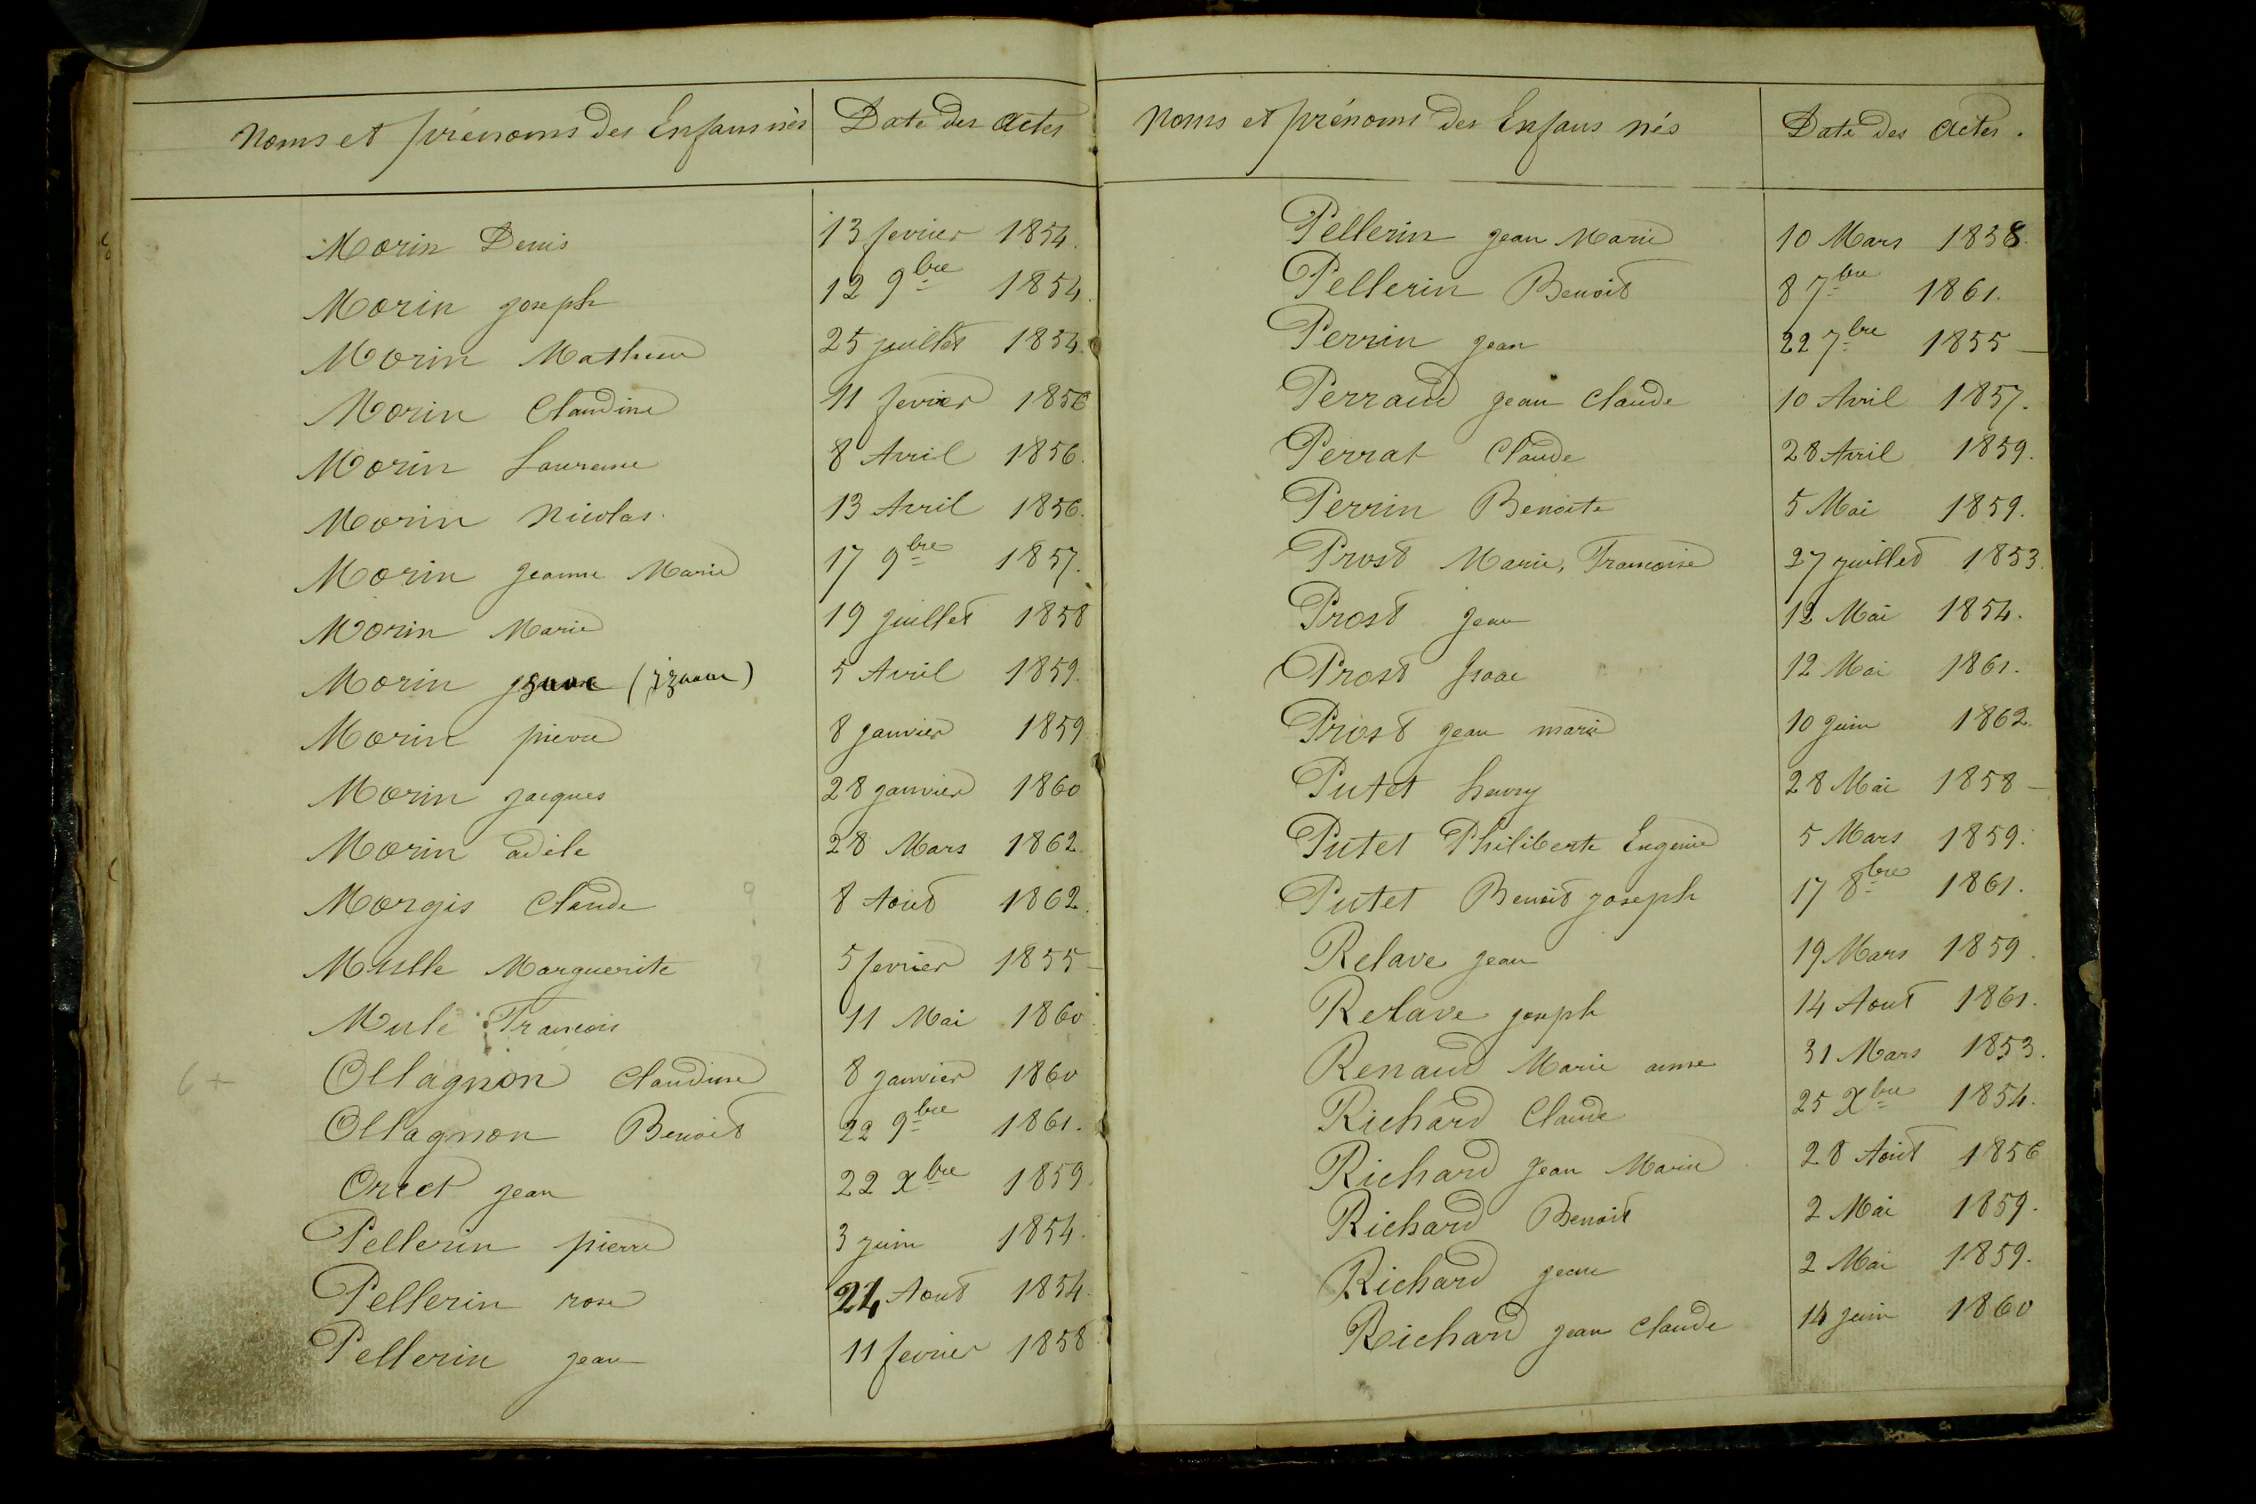 Noms et prénoms des Enfans nés Date des actes
Morin Denis 13 fevrier 1854.
Morin joseph 12 9bre 1854.
Morin Mathieu 25 juillet 1854.
Morin Claudine 11 fevrier 1856
Morin Laurence 8 Avril 1856.
Morin Nicolas. 13 Avril 1856.
Morin jeanne Marie 17 9bre 1857.
Morin Marie 19 juillet 1858
Morin 5 Avril 1859.
Morin pierre 8 janvier 1859
Morin jacques 28 janvier 1860
Morin adèle 28 Mars 1862.
Morgis Claude 8 Aout 1862.
Mulle Marguerite 5 fevrier 1855-
Mule Francois 11 Mai 1860
6 +
Ollagnon Claudine 8 janvier 1860
Ollagnon Benoit 22 9bre 1861.
Orret jean 22 Xbre 1859.
Pellerin pierre 3 juin 1854.
Pellerin rose 24 Aout 1854.
Pellerin jean 11 fevrier 1858
Noms et prénoms des Enfans nés Date des actes.
Pellerin jean Marie 10 Mars 1858.
Pellerin Benoit 8 7bre 1861.
Perrin jean 22 7bre 1855 -
Perraud jean Claude 10 Avril 1857.
Perrat Claude 28 Avril 1859.
Perrin Benoite 5 Mai 1859.
Prost Marie, Francoise 27 juillet 1853.
Prost jean 12 Mai 1854.
Prost Isaac 12 Mai 1861.
Prost jean marie 10 juin 1862.
Putet henry 28 Mai 1858 -
Putet Philiberte Eugenie 5 Mars 1859.
Putet Benoit joseph 17 8bre 1861.
Relave jean 19 Mars 1859.
Relave joseph 14 Aout 1861.
Renaud Marie anne 31 Mars 1853.
Richard Claude 25 Xbre 1854.
Richard jean Marie 28 Août 1856
Richard Benoit 2 Mai 1859.
Richard jean 2 Mai 1859.
Richard jean Claude 14 juin 1860